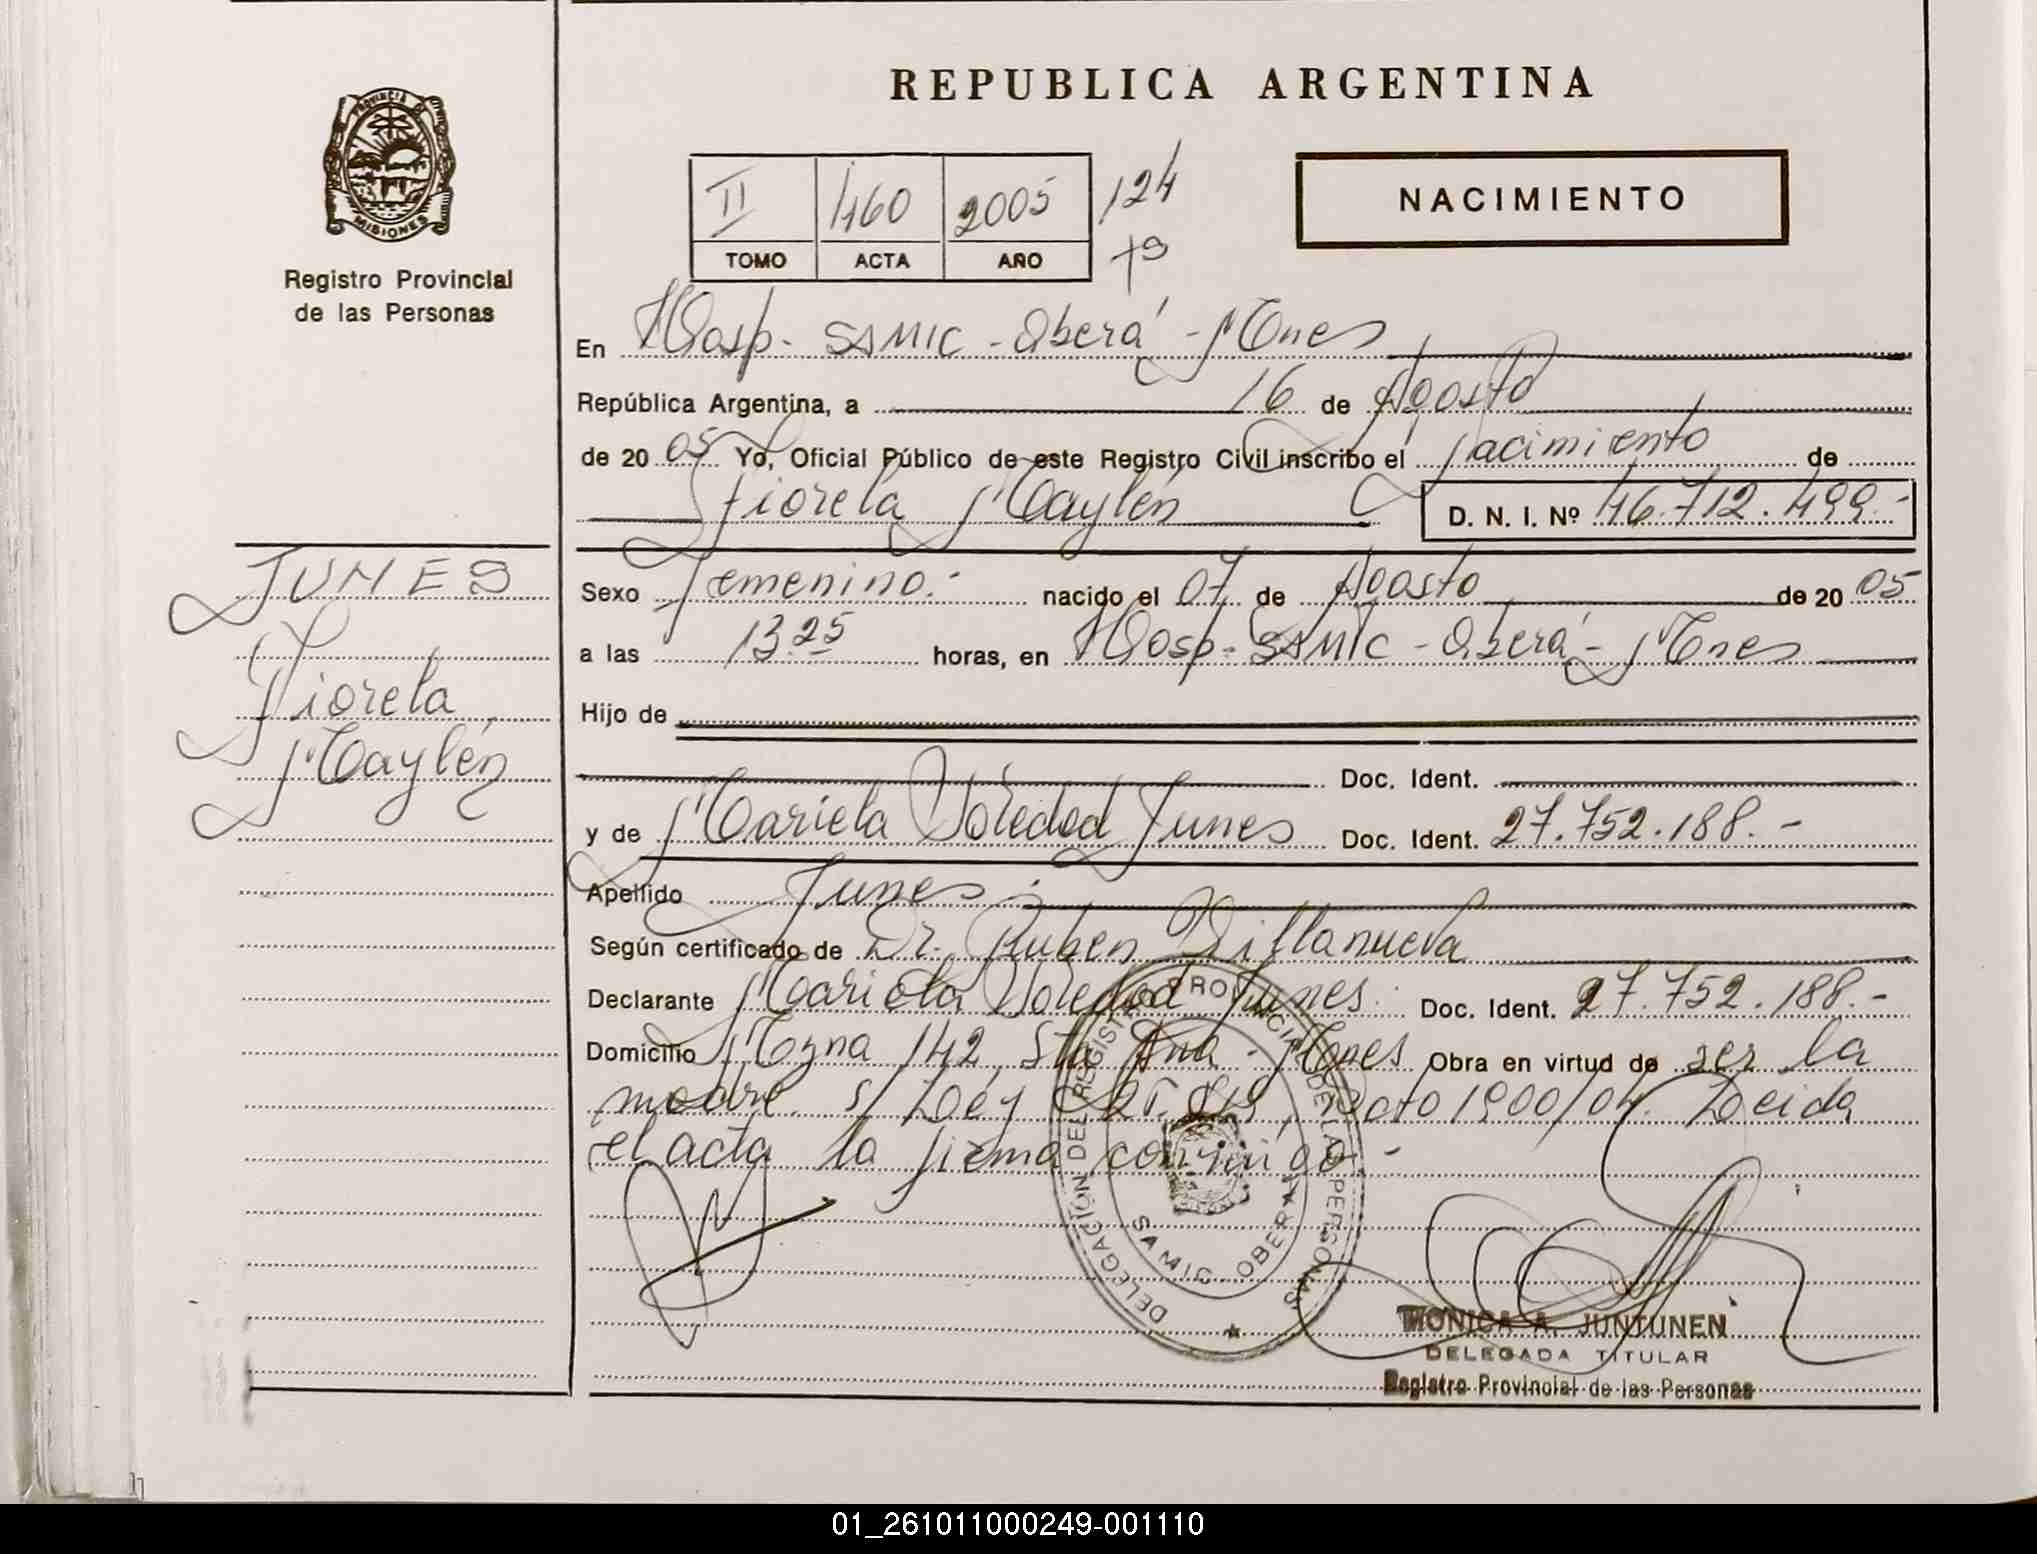 REPUBLICA ARGENTINA
PROVINCIA DE MISIONES
Registro Provincial
de las Personas
II 460 2005 124
TOMO ACTA AÑO
NACIMIENTO
En Hosp- SAMIC - Oberá - Mnes
República Argentina, a 16 de Agosto
de 20 05 Yo, Oficial Público de este Registro Civil inscribo el Nacimiento de
Fiorela Maylén D. N. I. Nº 46.712.499.-
JUNES
Fiorela
Maylén
Sexo Femenino.- nacido el 07 de Agosto de 20 05
a las 13.25 horas, en Hosp- SAMIC - Oberá - Mnes
Hijo de
Doc. Ident.
y de Mariela Soledad Junes Doc. Ident. 27.752.188.-
Apellido Junes.
Según certificado de Dr. Ruben Villanueva
Declarante Mariela Soledad Junes. Doc. Ident. 27.752.188.-
Domicilio Mzna 142, Sta Ana - Mnes Obra en virtud de ser la
madre. s/ Ley Dcto 1900/04. Leida
el acta la firma conmigo.-
DELEGACIÓN DEL REGISTRO PROVINCIAL DE LAS PERSONAS
SAMIC OBERA
MONICA A. JUNTUNEN
DELEGADA TITULAR
Registro Provincial de las Personas
01_261011000249-001110